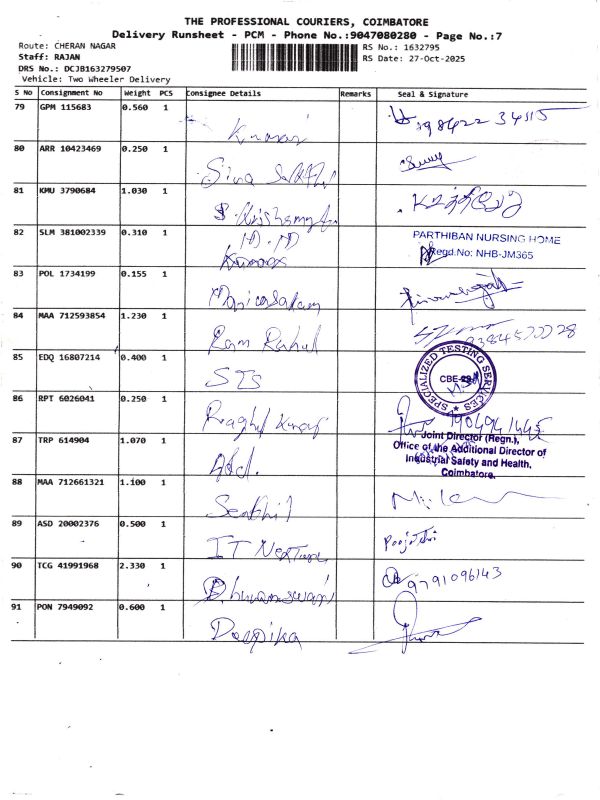 THE PROFESSIONAL COURIERS, COIMBATORE
Delivery Runsheet - PCM - Phone No.:9047080280 - Page No.:7
Route: CHERAN NAGAR
RS No.: 1632795
Staff: RAJAN
RS Date: 27-Oct-2025
DRS No.: DCJB163279507
Vehicle: Two Wheeler Delivery
S No Consignment No Weight PCS Consignee Details Remarks Seal & Signature
79 GPM 115683 0.560 1
Kumar
80 ARR 10423469 0.250 1
Siva
81 KMU 3790684 1.030 1
82 SLM 381002339 0.310 1
PARTHIBAN NURSING HOME
Regd.No: NHB-JM365
83 POL 1734199 0.155 1
84 MAA 712593854 1.230 1
Ram Rahul
85 EDQ 16807214 0.400 1
STS
SPECIALIZED TESTING SERVICES
86 RPT 6026041 0.250 1
87 TRP 614904 1.070 1
Joint Director (Regn.),
Office of the Additional Director of
Industrial Safety and Health,
Coimbatore.
88 MAA 712661321 1.100 1
Senthil
89 ASD 20002376 0.500 1
IT
90 TCG 41991968 2.330 1
9791096143
91 PON 7949092 0.600 1
Deepika